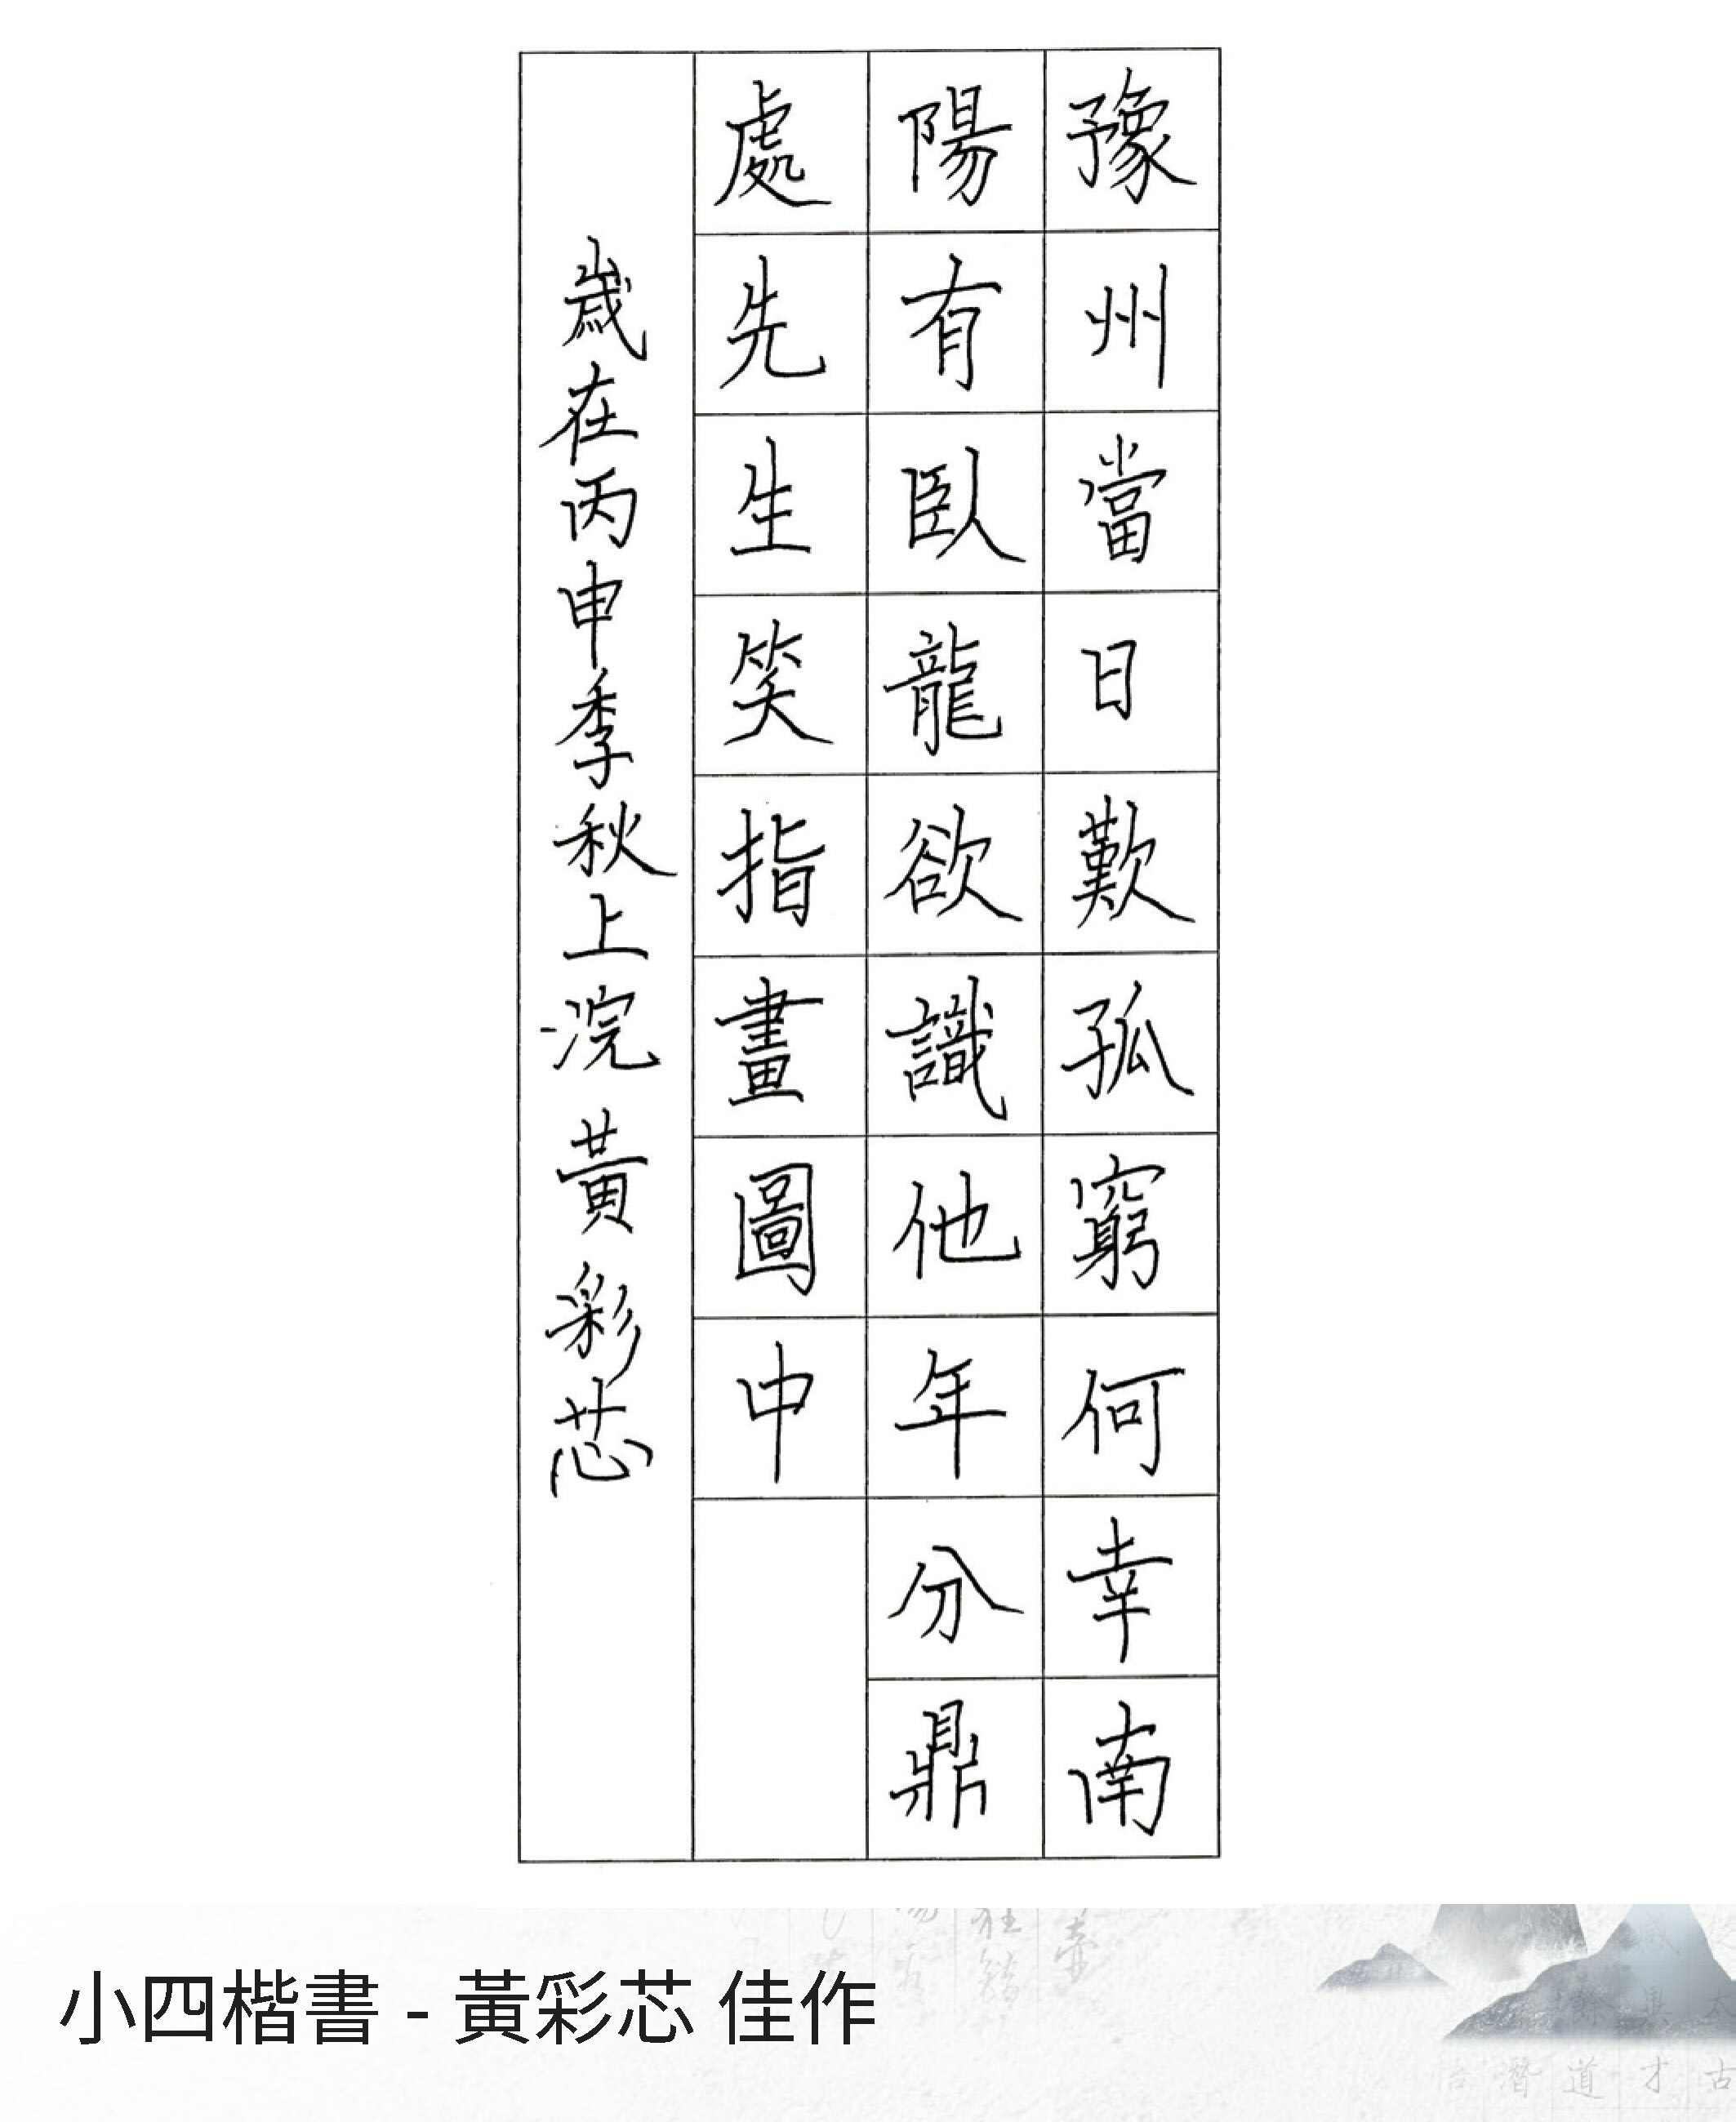 豫州當日歎孤窮何幸南
陽有臥龍欲識他年分鼎
處先生笑指畫圖中
歲在丙申季秋上浣黃彩芯
小四楷書 - 黃彩芯 佳作